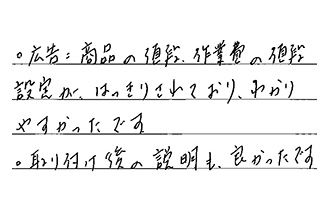 ○広告:商品の値段、作業費の値段
設定が、はっきりされており、わかり
やすかったです
○取り付け後の説明も、良かったです